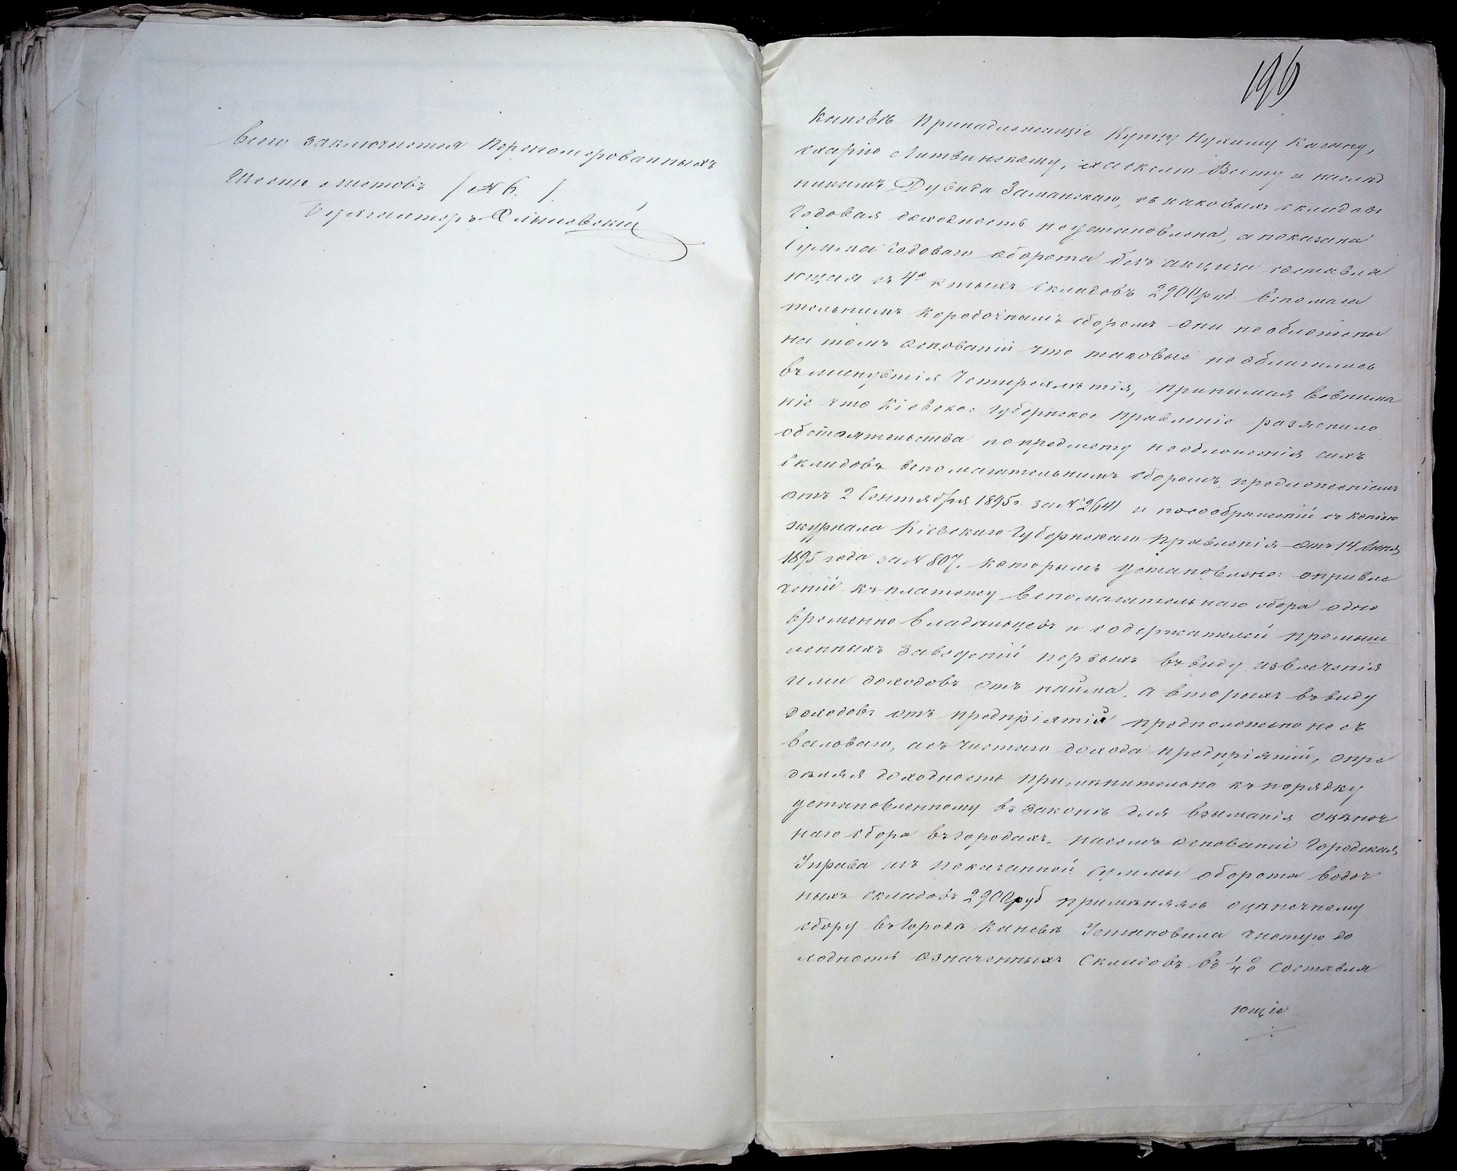 Всего заключается перенумерованныхъ
Шесть листовъ / № 6. /.
Бухгалтеръ
196
Каневѣ принадлежащіе Купцу Нухиму Кагану,
Литвинскому, и наслѣд
никамъ Дувида Заманскаго, съ каковыхъ складовъ
годовая доходность неустановлена, а показана
Сумма годоваго оборота безъ акциза составля
ющая съ 4х складовъ 2900 руб. вспомога
тельнымъ коробочнымъ сборомъ они необложены
на томъ основаніи что таковые необлагались
въ минувшія Четырехлѣтія, принимая вовнима
ніе что Кіевское Губернское Правленіе разяснило
обстоятельства попредмету необложенія сихъ
Складовъ вспомагательнымъ сборомъ, предложеніемъ
отъ 2 Сентября 1895 г. за № 2641 и посоображеній съ копіею
журнала Кіевскаго Губернскаго Правленія отъ 14
1895 года за № 807. которымъ установлено: опривле
ченіи къ платежу вспомагательнаго сбора одно
временно владѣльцевъ и содержателей промыш
ленныхъ заведеній первыхъ ввиду извлеченія
ими доходовъ отъ найма, а вторыхъ ввиду
доходовъ отъ предпріятій предположено не съ
валоваго, а съ чистаго дохода предпріятій, опре
дѣляя доходность примѣнительно къ порядку
установленному въ законѣ для взиманія оцѣноч
наго сбора въ городахъ. насемъ основаніи Городская
Управа изъ показанной Суммы оборота водоч
ныхъ складовъ 2900 руб примѣняясь оцѣночному
сбору въ городѣ Каневѣ Установила чистую до
ходность означенныхъ Складовъ въ составля
ющіе